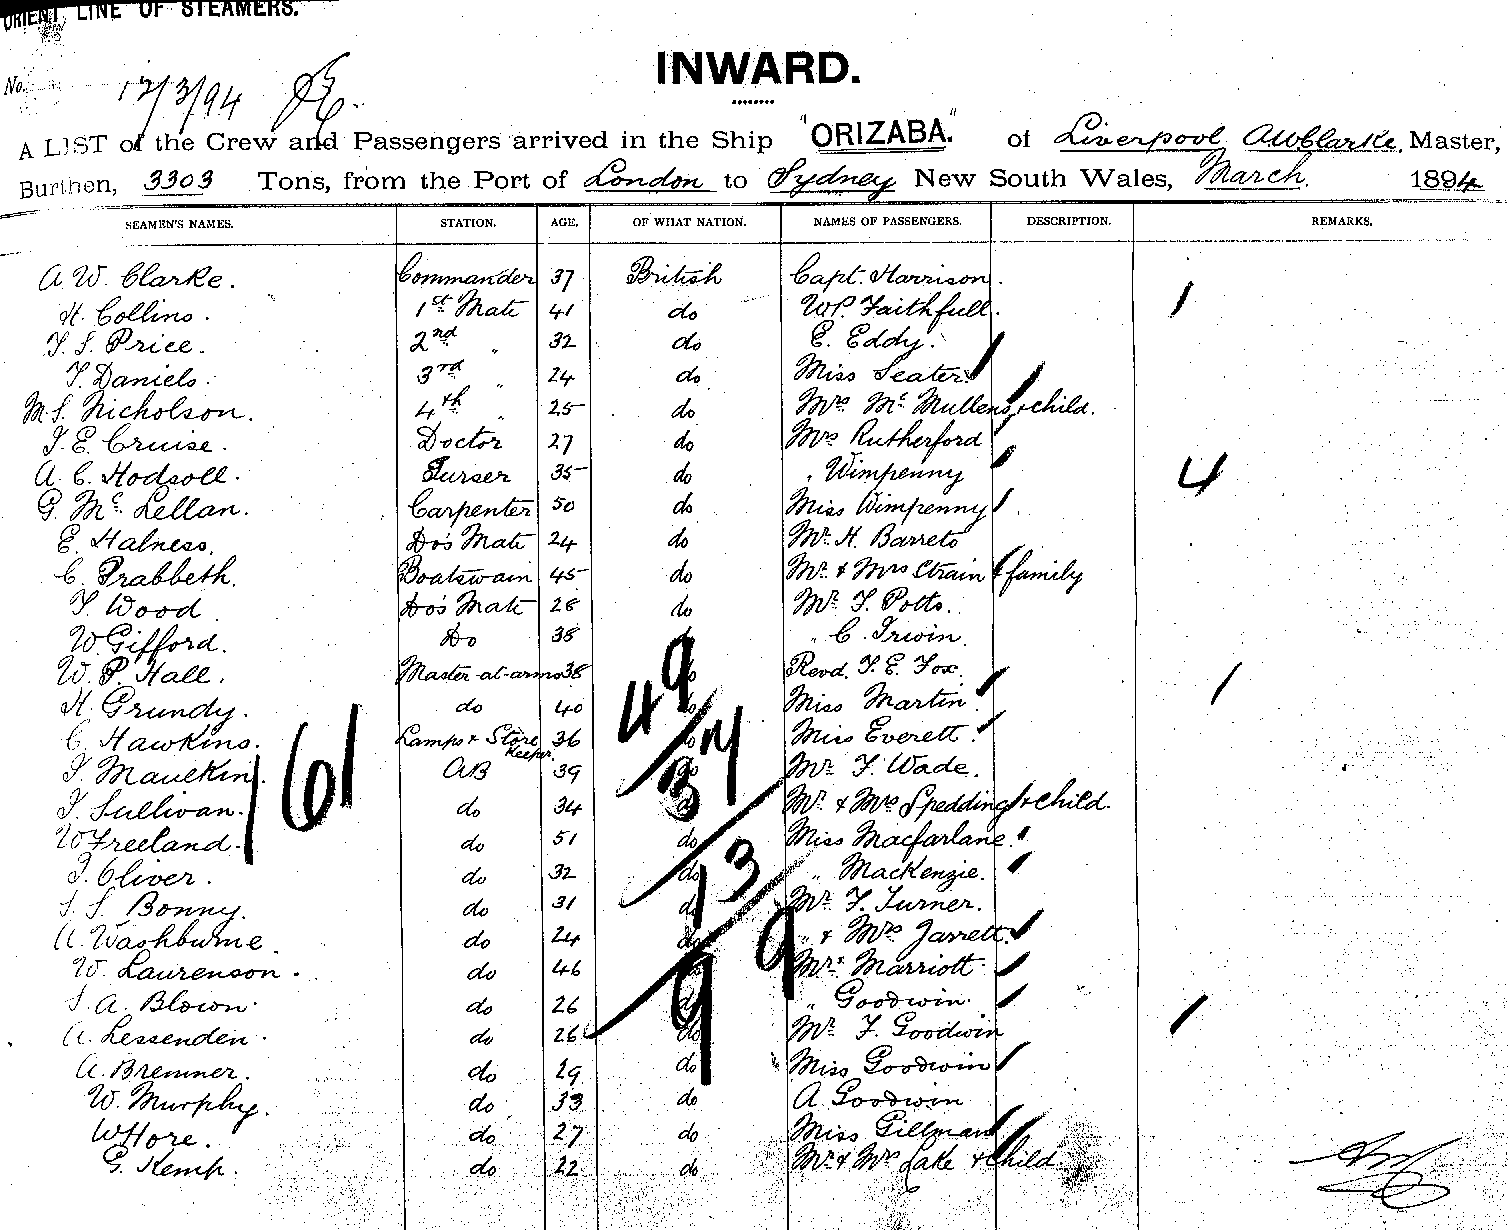 ORIENT LINE OF STEAMERS.
INWARD.
No. 12/3/94
A LIST of the Crew and Passengers arrived in the Ship "ORIZABA." of Liverpool AWClarke, Master,
Burthen, 3303 Tons, from the Port of London to Sydney New South Wales, March. 1894
SEAMEN'S NAMES. STATION. AGE. OF WHAT NATION. NAMES OF PASSENGERS. DESCRIPTION. REMARKS.
A. W. Clarke. Commander 37 British Capt. Harrison.
H. Collins. 1st Mate 41 do W.P. Faithfull. 1
T. S. Price. 2nd " 32 do E. Eddy.
T. Daniels. 3rd " 24 do Miss Seater
M. S. Nicholson. 4th " 25 do Mrs McMullens + child.
T. E. Cruise. Doctor 27 do Mrs Rutherford
A. C. Hodsoll. Purser 35 do " Wimpenny 4
G. McLellan. Carpenter 50 do Miss Wimpenny
E. Halness. Do's Mate 24 do Mr. H. Barrets
C. Prabbeth. Boatswain 45 do Mr. & Mrs Strain & family
T. Wood Do's Mate 28 do Mr. T. Potts.
W Gifford. Do 38 do " C. Irwin.
W. P. Hall. Master-at-arms 38 do Revd. T. E. Fox.
H. Grundy. do 40 do Miss Martin 1
C. Hawkins. Lamps & Store Keeper. 36 do Miss Everett.
T. Mauckin AB 39 do Mr. F. Wade.
T. Sullivan. do 34 do Mr. & Mrs Spedding + child.
W Freeland. do 51 do Miss Macfarlane.
T. Oliver. do 32 do " MacKenzie.
S. S. Bonny. do 31 do Mr. F. Turner.
A. Washburne. do 24 do " & Mrs Jarrett.
W. Laurenson. do 46 do Mrs Marriott
S. A. Blown. do 26 do " Goodwin. 1
A. Lessenden. do 26 do Mr. F. Goodwin
A. Bremner. do 29 do Miss Goodwin
W. Murphy. do 33 do A Goodwin
W Hore. do 27 do Miss Gillman
G. Kemp. do 22 do Mr. & Mrs Lake + child
61
49
37
13
9
9